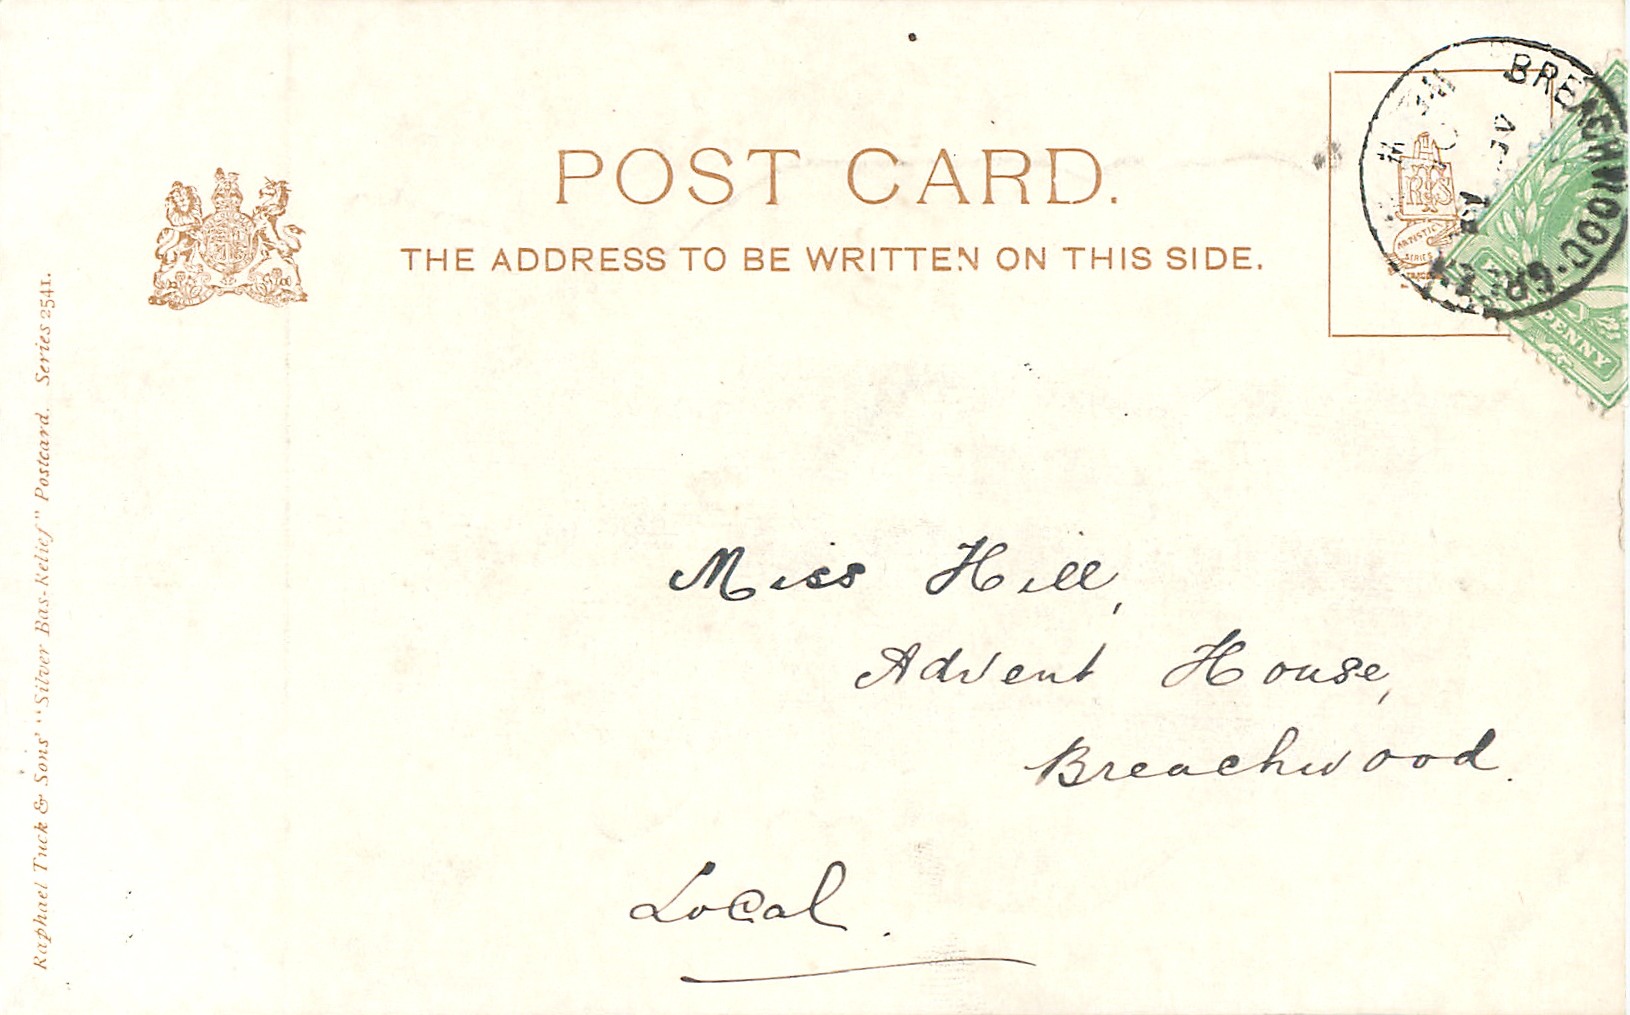 POST CARD.
THE ADDRESS TO BE WRITTEN ON THIS SIDE.
BREACHWOOD. GREEN
ARTISTIC
SERIES
PENNY
Miss Hill,
Advent House,
Breachwood.
Local.
Raphael Tuck & Sons' "Silver Bas-Relief" Postcard. Series 2541.